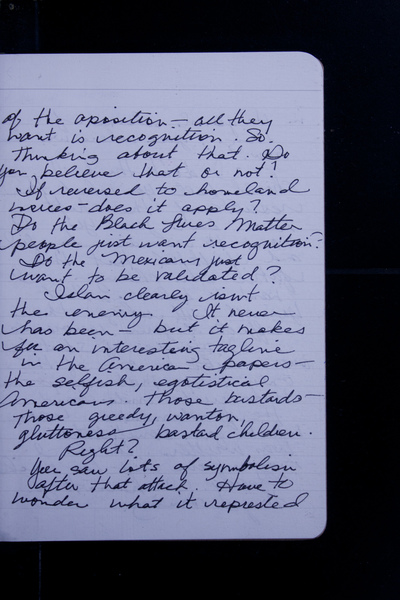 of the aposition — all they
want is recognition. So.
Thinking about that. Do
you believe that or not?
If reversed to homeland
– does it apply?
Do the Black lives Matter
people just want recognition?
Do the Mexicans just
want to be validated?
Islam clearly isn't
the enemy. It never
has been — but it makes
for an interesting tagline
in the American papers —
the selfish, egotistical
Americans. Those bastards —
Those greedy, wanton,
gluttoness bastard children.
Right?
You saw lots of symbolism
after that attack. Have to
wonder what it represted